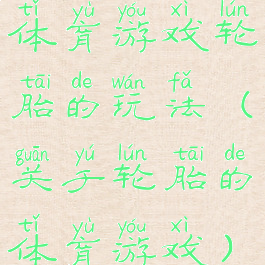 tǐ yù yóu xì lún
体育游戏轮
tāi de wán fǎ
胎的玩法（
guān yú lún tāi de
关于轮胎的
tǐ yù yóu xì
体育游戏）